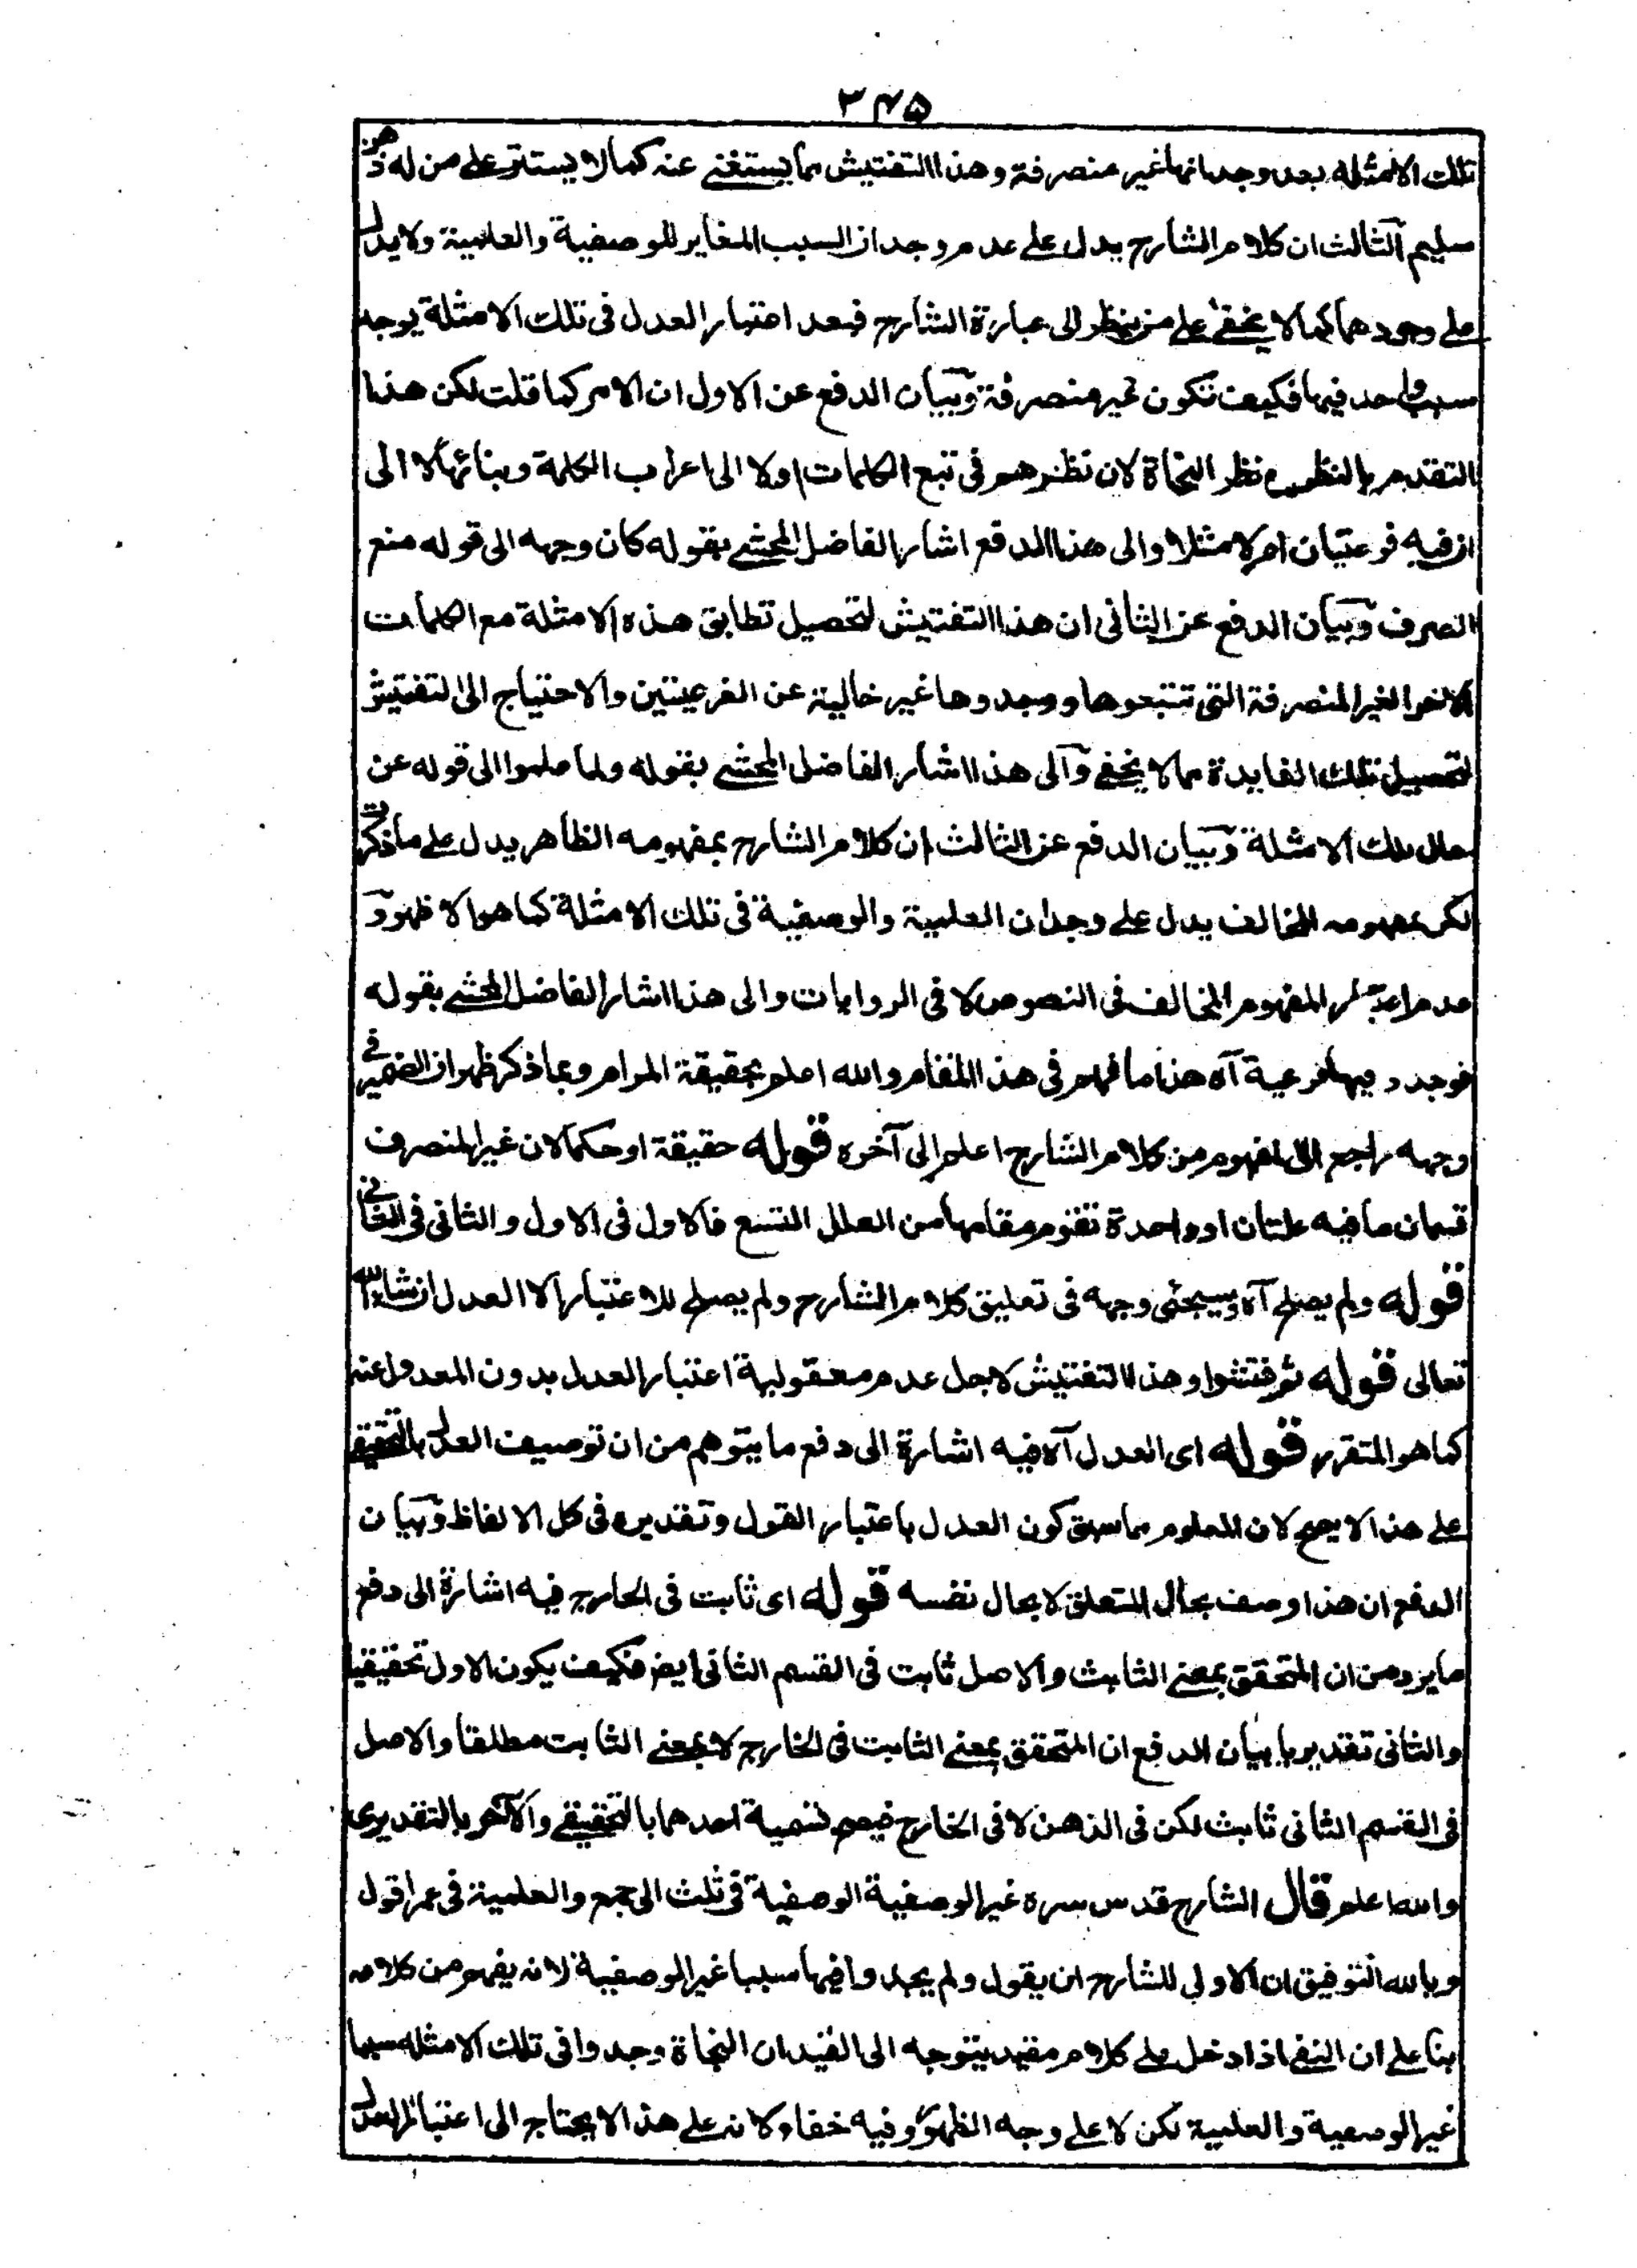 ۳۴۵
تلك الامثله بعد وجدانها غير منصرفة وهذا التفتيش مما يستغنى عنه كما لا يستتر على من له ذهن
سليم الثالث ان كلام الشارح يدل على عدم وجدان السبب المغاير للوصفية والعلمية ولا يدل
على وجودهما كما لا يخفى على من ينظر الى عبارة الشارح فبعد اعتبار العدل فى تلك الامثلة يوجد
سبب واحد فيها فكيف تكون غير منصرفة وبيان الدفع عن الاول ان الامر كما قلت لكن هذا
التقدم بالنظر نظر النحاة لان نظرهم فى تتبع الكلمات اولا الى اعراب الكلمة وبنائها لا الى
ان فيه فرعيتان ام لا مثلا والى هذا الدفع اشار الفاضل المحشى بقوله كان وجهه الى قوله منع
الصرف وبيان الدفع عن الثانى ان هذا التفتيش لتحصيل تطابق هذه الامثلة مع الكلمات
الاخر الغير المنصرفة التى تتبعوها ووجدوها غير خالية عن الفرعيتين والاحتياج الى التفتيش
لتحصيل تلك الفايدة مما لا يخفى والى هذا اشار الفاضل المحشى بقوله ولما علموا الى قوله عن
حال تلك الامثلة وبيان الدفع عن الثالث ان كلام الشارح بمفهومه الظاهر يدل على ما ذكرت
لكن بمفهومه المخالف يدل على وجدان العلمية والوصفية فى تلك الامثلة كما هو الاظهر و
عدم اعتبار المفهوم المخالف فى النصوص لا فى الروايات والى هذا اشار الفاضل المحشى بقوله
فوجدو فيها فرعية آه هذا ما فهم فى هذا المقام والله اعلم بحقيقة المرام وبما ذكر ظهر ان الضمير فى
وجهه راجع الى المفهوم من كلام الشارح اعلم الى آخره قوله حقيقة او حكما لان غير المنصرف
قسمان ما فيه علتان او واحدة تقوم مقامها من العلل التسع فالاول فى الاول والثانى فى الثانى
قوله ولم يصلح آه وسيجئى وجهه فى تعليق كلام الشارح ولم يصلح للاعتبار الا العدل ان شاء الله
تعالى قوله ثم فتشوا وهذا التفتيش لاجل عدم معقولية اعتبار العدل بدون المعدول عنه
كما هو المتقرر قوله اى العدل آه فيه اشارة الى دفع ما يتوهم من ان توصيف العدل بالتحقيقى
على هذا لا يصح لان المعلوم مما سبق كون العدل باعتبار القول وتقديره فى كل الالفاظ وبيان
الدفع ان هذا وصف بحال المتعلق لا بحال نفسه قوله اى ثابت فى الخارج فيه اشارة الى دفع
ما يرد من ان المتحقق بمعنى الثابت والاصل ثابت فى القسم الثانى ايض فكيف يكون الاول تحقيقيا
والثانى تقديريا بيان الدفع ان المتحقق بمعنى الثابت فى الخارج لا بمعنى الثابت مطلقا والاصل
فى القسم الثانى ثابت لكن فى الذهن لا فى الخارج فيصح تسمية احدهما بالتحقيقى والآخر بالتقديرى
والله اعلم قال الشارح قدس سره غير الوصفية الوصفية فى ثلث الى جمع والعلمية فى عمر اقول
وبالله التوفيق ان الاولى للشارح ان يقول ولم يجدوا فيها سببا غير الوصفية لانه يفهم من كلامه
بنا على ان النفى اذا دخل على كلام مقيد يتوجه الى القيد ان النحاة وجدوا فى تلك الامثله سببا
غير الوصفية والعلمية لكن لا على وجه الظهور وفيه خفاء لانه على هذا لا يحتاج الى اعتبار العدل